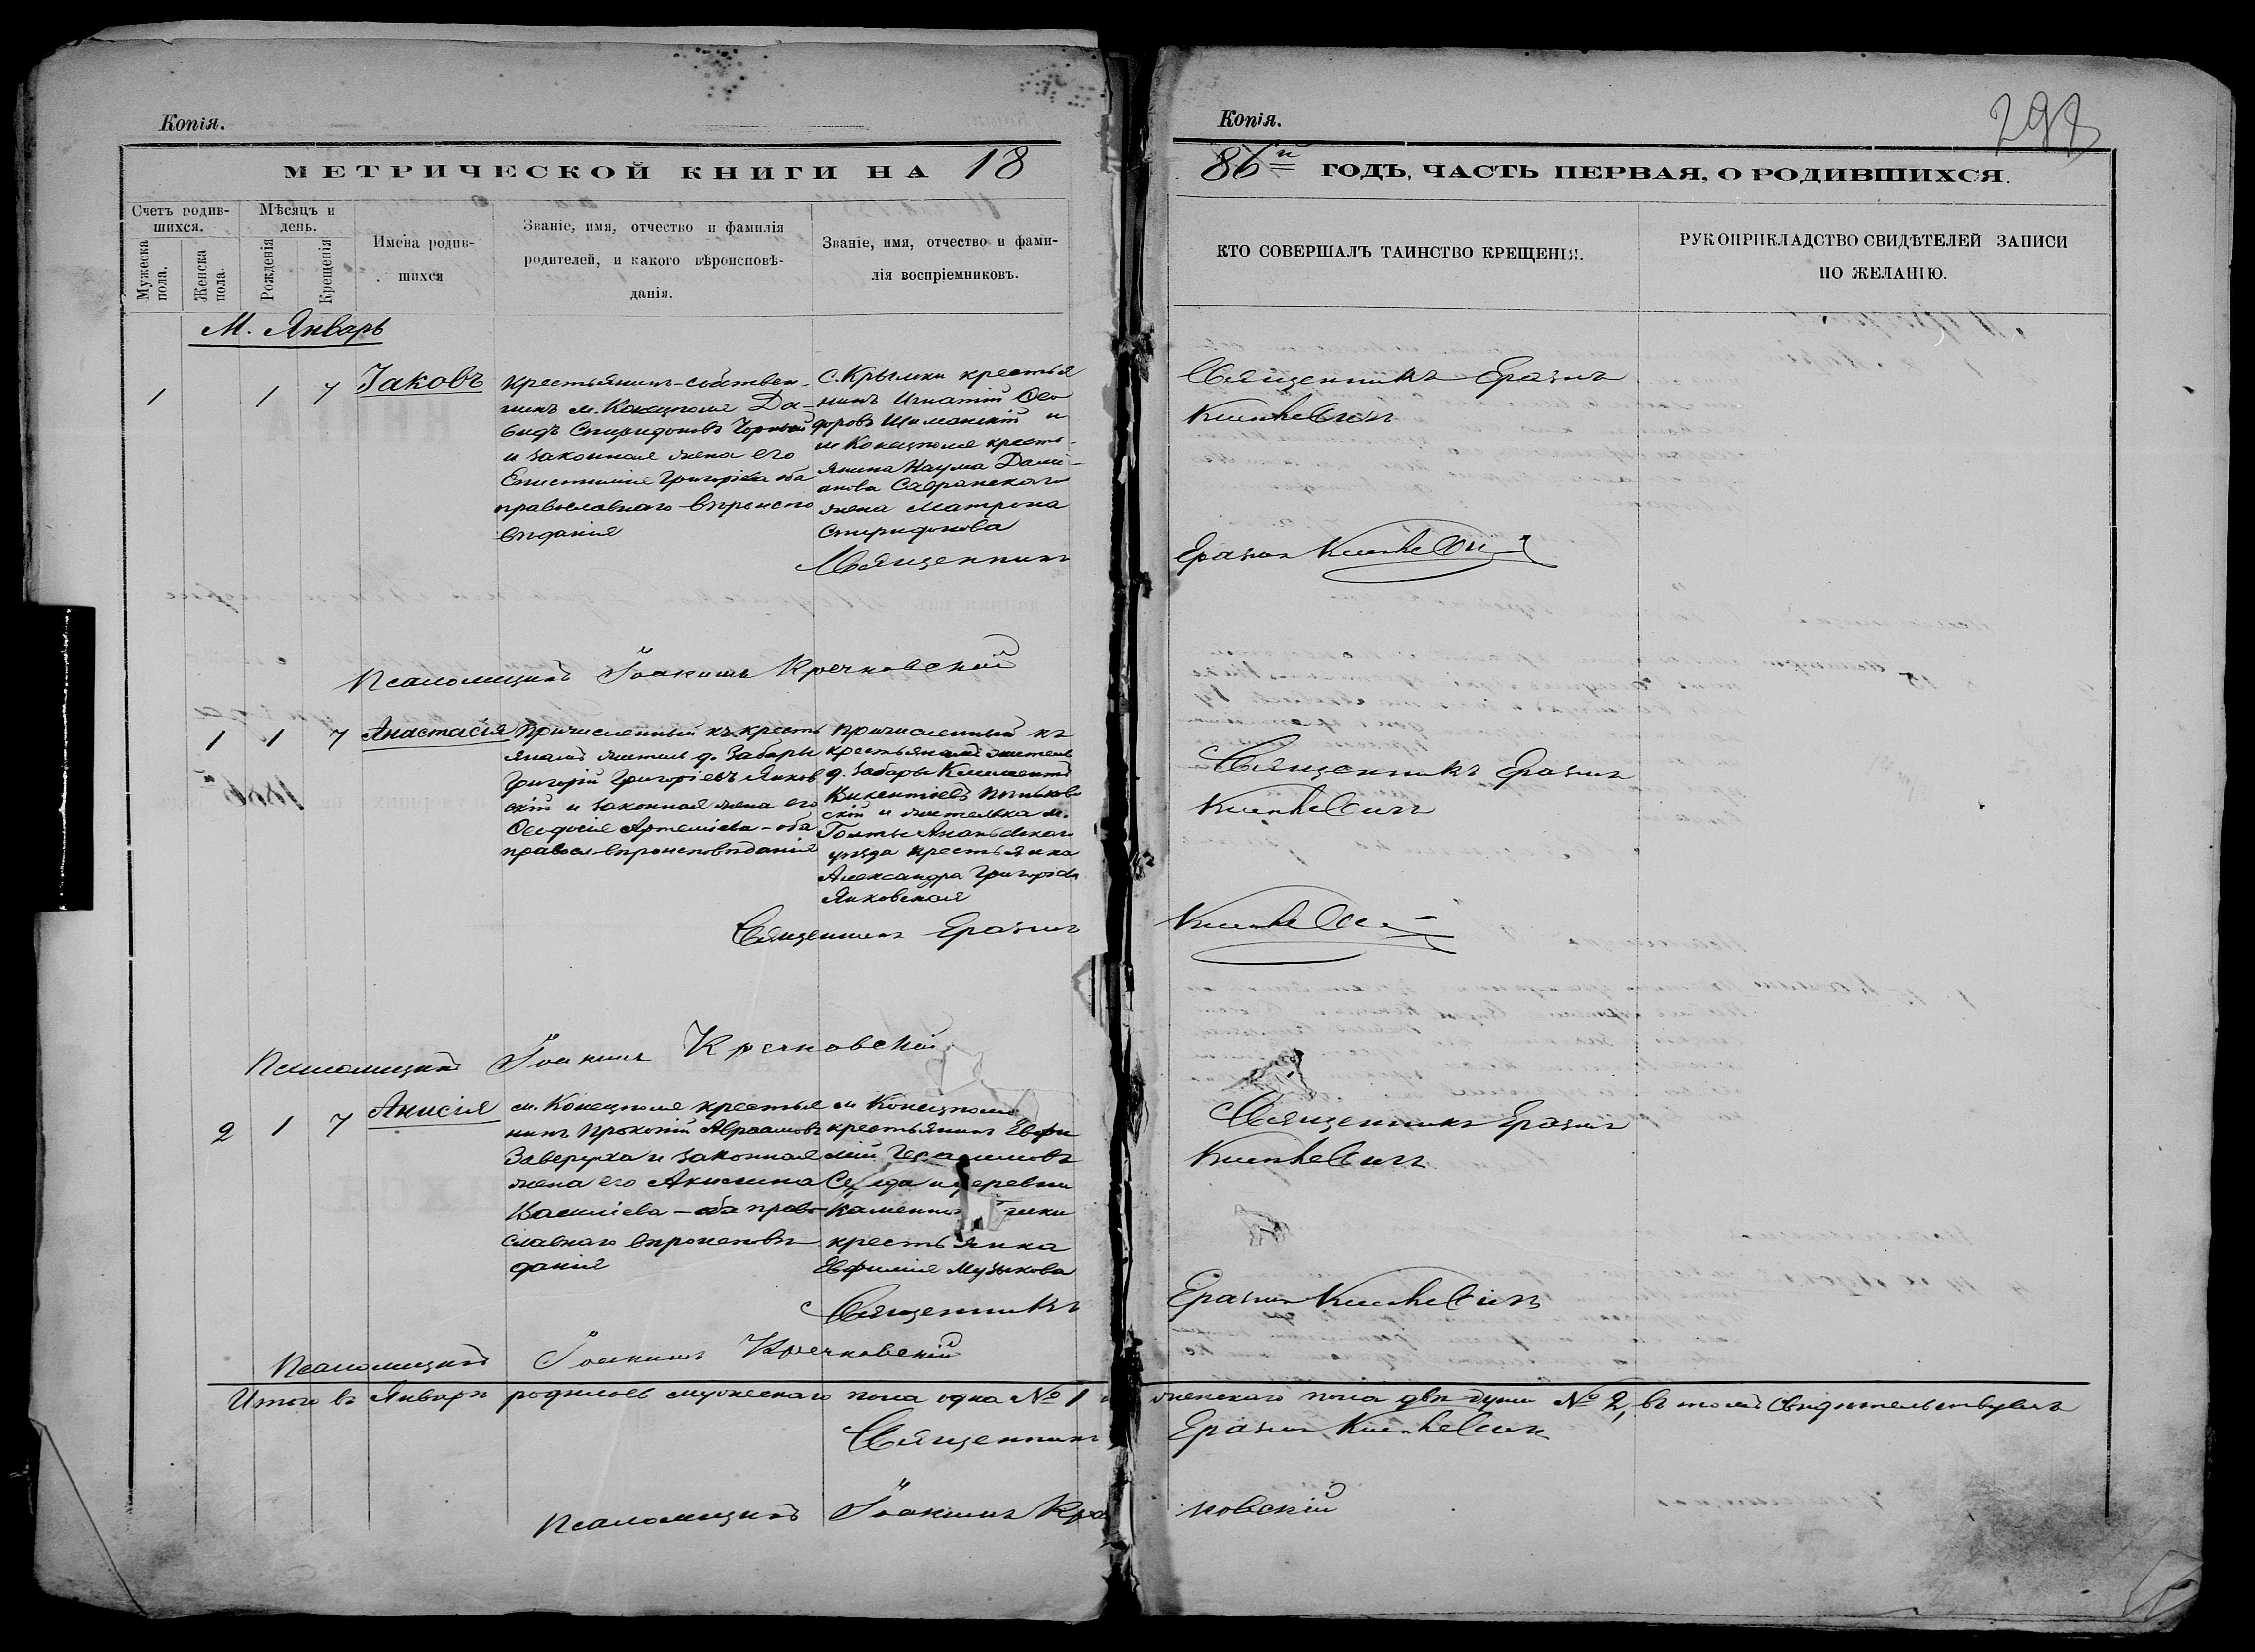 Копія.
МЕТРИЧЕСКОЙ КНИГИ НА 18
Счетъ родив-
шихся.
Мужеска
пола.
Женска
пола.
Мѣсяцъ и
день.
Рожденія
Крещенія
Имена родив-
шихся
Званіе, имя, отчество и фамилія
родителей, и какого вѣроисповѣ-
данія.
Званіе, имя, отчество и фами-
лія воспріемниковъ.
Копія.
298
86й ГОДЪ, ЧАСТЬ ПЕРВАЯ, О РОДИВШИХСЯ.
КТО СОВЕРШАЛЪ ТАИНСТВО КРЕЩЕНІЯ.
РУКОПРИКЛАДСТВО СВИДѢТЕЛЕЙ ЗАПИСИ
ПО ЖЕЛАНІЮ.
М. Январь
1
1 7
Іаковъ
Крестьянинъ-собствен-
никъ м. Конецполя Да-
видъ Спиридоновъ Чорный
и законная жена его
Епистимія Григоріева оба
православнаго вѣроиспо
вѣданія
с. Крымки крестья
нинъ Игнатій Ѳео
доровъ Шиманскій и
м Конецполя кресть-
янина Наума Дамі-
анова Савранскаго
жена Матрона
Спиридонова
Священникъ Еразмъ
Священникъ
Еразмъ
Псаломщикъ Іоакимъ Кречковскій
1 1 7
Анастасія
Причисленный къ кресть
янамъ житель д. Забары
Григорій Григоріевъ Янков
скій и законная жена его
Ѳеодосія Артеміева - оба
правосл. вѣроисповѣданія
Причисленный къ
крестьянамъ житель
д. Забары Климентъ
Викентіевъ
скій и жителька м.
Голты Ананьевскаго
уѣзда крестьянка
Александра Григоріева
Янковская
Священникъ Еразмъ
Священникъ Еразмъ
Псаломщикъ Іоакимъ Кречковскій
2 1 7
Анисія
м. Конецполя крестья
нинъ Прокопій Авраамовъ
Заверуха и законная
жена его Акилина
Василіева - оба право-
славнаго вѣроисповѣ
данія
м Конецполя
крестьянинъ Евфи
мій Герасимовъ
и деревни
крестьянка
Евфимія Музыкова
Священникъ Еразмъ
Священникъ
Еразмъ
Псаломщикъ Іоакимъ Кречковскій
Итого въ Январѣ родилось мужескаго пола одна № 1 и женскаго пола двѣ души № 2, въ томъ свидѣтельствуемъ
Священникъ Еразмъ
Псаломщикъ Іоакимъ Кречковскій